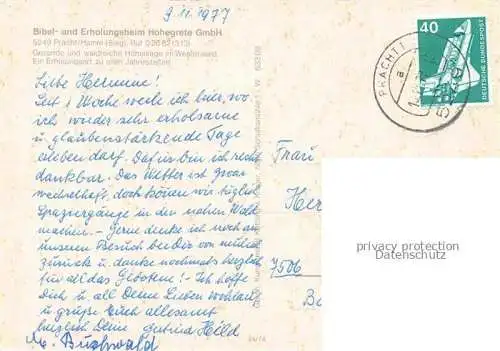 9.11.1977
Bibel- und Erholungsheim Hohegrete GmbH
5249 Pracht/Hamm (Sieg), Ruf
Gesunde und waldreiche Höhenlage im Westerwald
Ein Erholungsort zu allen Jahreszeiten
40
DEUTSCHE BUNDESPOST
PRACHT
a
Liebe Hermine!
Seit 1 Woche weile ich hier, wo
ich wieder sehr erholsame
u. glaubenstärkende Tage
erleben darf. Dafür bin ich recht
dankbar. Das Wetter ist zwar
wechselhaft, doch können wir täglich
Spaziergänge in den nahen Wald
machen. - Gerne denke ich noch an
unseren Besuch bei Dir von
zurück u. danke nochmals herzlich
für all das Gebotene! - Ich hoffe
Dich u. all Deine Lieben wohlauf
u. grüße Euch allesamt
herzlich Deine Heild
Buchwald
Frau
Her
7506
privacy protection
Datenschutz